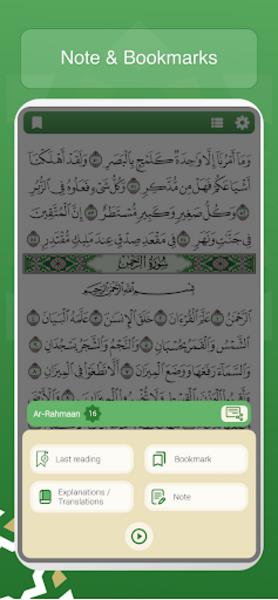 Note & Bookmarks
وَمَآ أَمْرُنَآ إِلَّا وَٰحِدَةٌ كَلَمْحٍۭ بِٱلْبَصَرِ ٥٠ وَلَقَدْ أَهْلَكْنَآ
أَشْيَاعَكُمْ فَهَلْ مِن مُّدَّكِرٍ ٥١ وَكُلُّ شَىْءٍ فَعَلُوهُ فِى ٱلزُّبُرِ
٥٢ وَكُلُّ صَغِيرٍ وَكَبِيرٍ مُّسْتَطَرٌ ٥٣ إِنَّ ٱلْمُتَّقِينَ
فِى جَنَّٰتٍ وَنَهَرٍ ٥٤ فِى مَقْعَدِ صِدْقٍ عِندَ مَلِيكٍ مُّقْتَدِرٍۭ ٥٥
سُورَةُ الرَّحْمَٰن
بِسْمِ ٱللَّهِ ٱلرَّحْمَٰنِ ٱلرَّحِيمِ
ٱلرَّحْمَٰنُ ١ عَلَّمَ ٱلْقُرْءَانَ ٢ خَلَقَ ٱلْإِنسَٰنَ ٣ عَلَّمَهُ ٱلْبَيَانَ ٤
ٱلشَّمْسُ وَٱلْقَمَرُ بِحُسْبَانٍ ٥ وَٱلنَّجْمُ وَٱلشَّجَرُ يَسْجُدَانِ ٦
وَٱلسَّمَآءَ رَفَعَهَا وَوَضَعَ ٱلْمِيزَانَ ٧ أَلَّا تَطْغَوْا۟ فِى ٱلْمِيزَانِ
Ar-Rahmaan 16
Last reading
Bookmark
Explanations /
Translations
Note